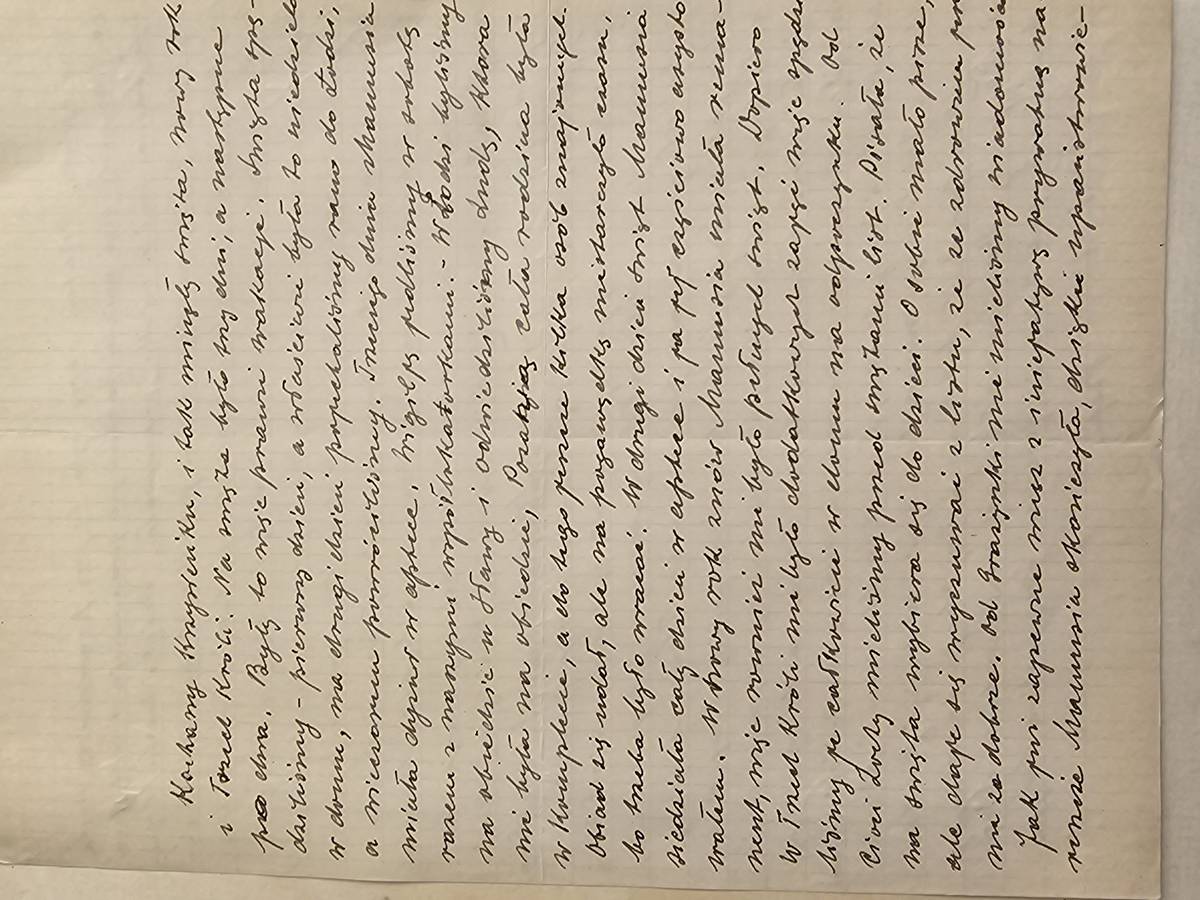 Kochany Krzysieńku, i tak minęły święta, nowy rok
i Trzech Króli. Na święta było trzy dni, a następne
po dwa. Były to więc prawie wakacje. Święta spę-
dziliśmy - pierwszy dzień, a właściwie była to niedziela
w domu, na drugi dzień pojechaliśmy rano do Łodzi,
a wieczorem powróciliśmy. Trzeciego dnia Mamusia
miała dyżur w aptece. Wigilię jedliśmy w sobotę
razem z naszymi współlokatorkami. - W Łodzi byliśmy
na obiedzie u Hanny i odwiedziliśmy Lindę, która
nie była na obiedzie, Poza tym cała rodzina była
w komplecie, a do tego jeszcze kilka osób znajomych.
Obiad się udał, ale na pogawędkę nie starczyło czasu,
bo trzeba było wracać. W drugi dzień świąt Mamusia
siedziała cały dzień w aptece i ja jej częściowo
wałem. W Nowy rok znów Mamusia miała rema-
nent, więc również nie było pełnych świąt. Dopiero
w Trzech Króli nie było dodatkowych zajęć więc spędzi-
liśmy je całkowicie w domu na odpoczynku. Od
Cioci Zochy mieliśmy przed świętami list. Pisała, że
na święta wybiera się do dzieci. O sobie mało pisze,
ale daje się wyczuwać z listu, że ze zdrowiem jej
nie za dobrze. Od mieliśmy wiadomości
Jak już zapewne wiesz z praktykę prywatną na
rencie Mamusia skończyła, dzięki upaństwowie-